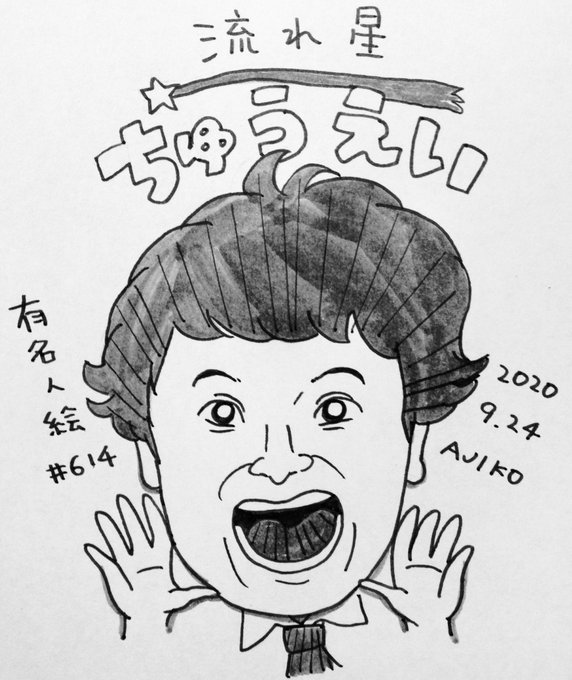 流れ星
ちゅうえい
有名人絵
#614
2020
9.24
AJIKO